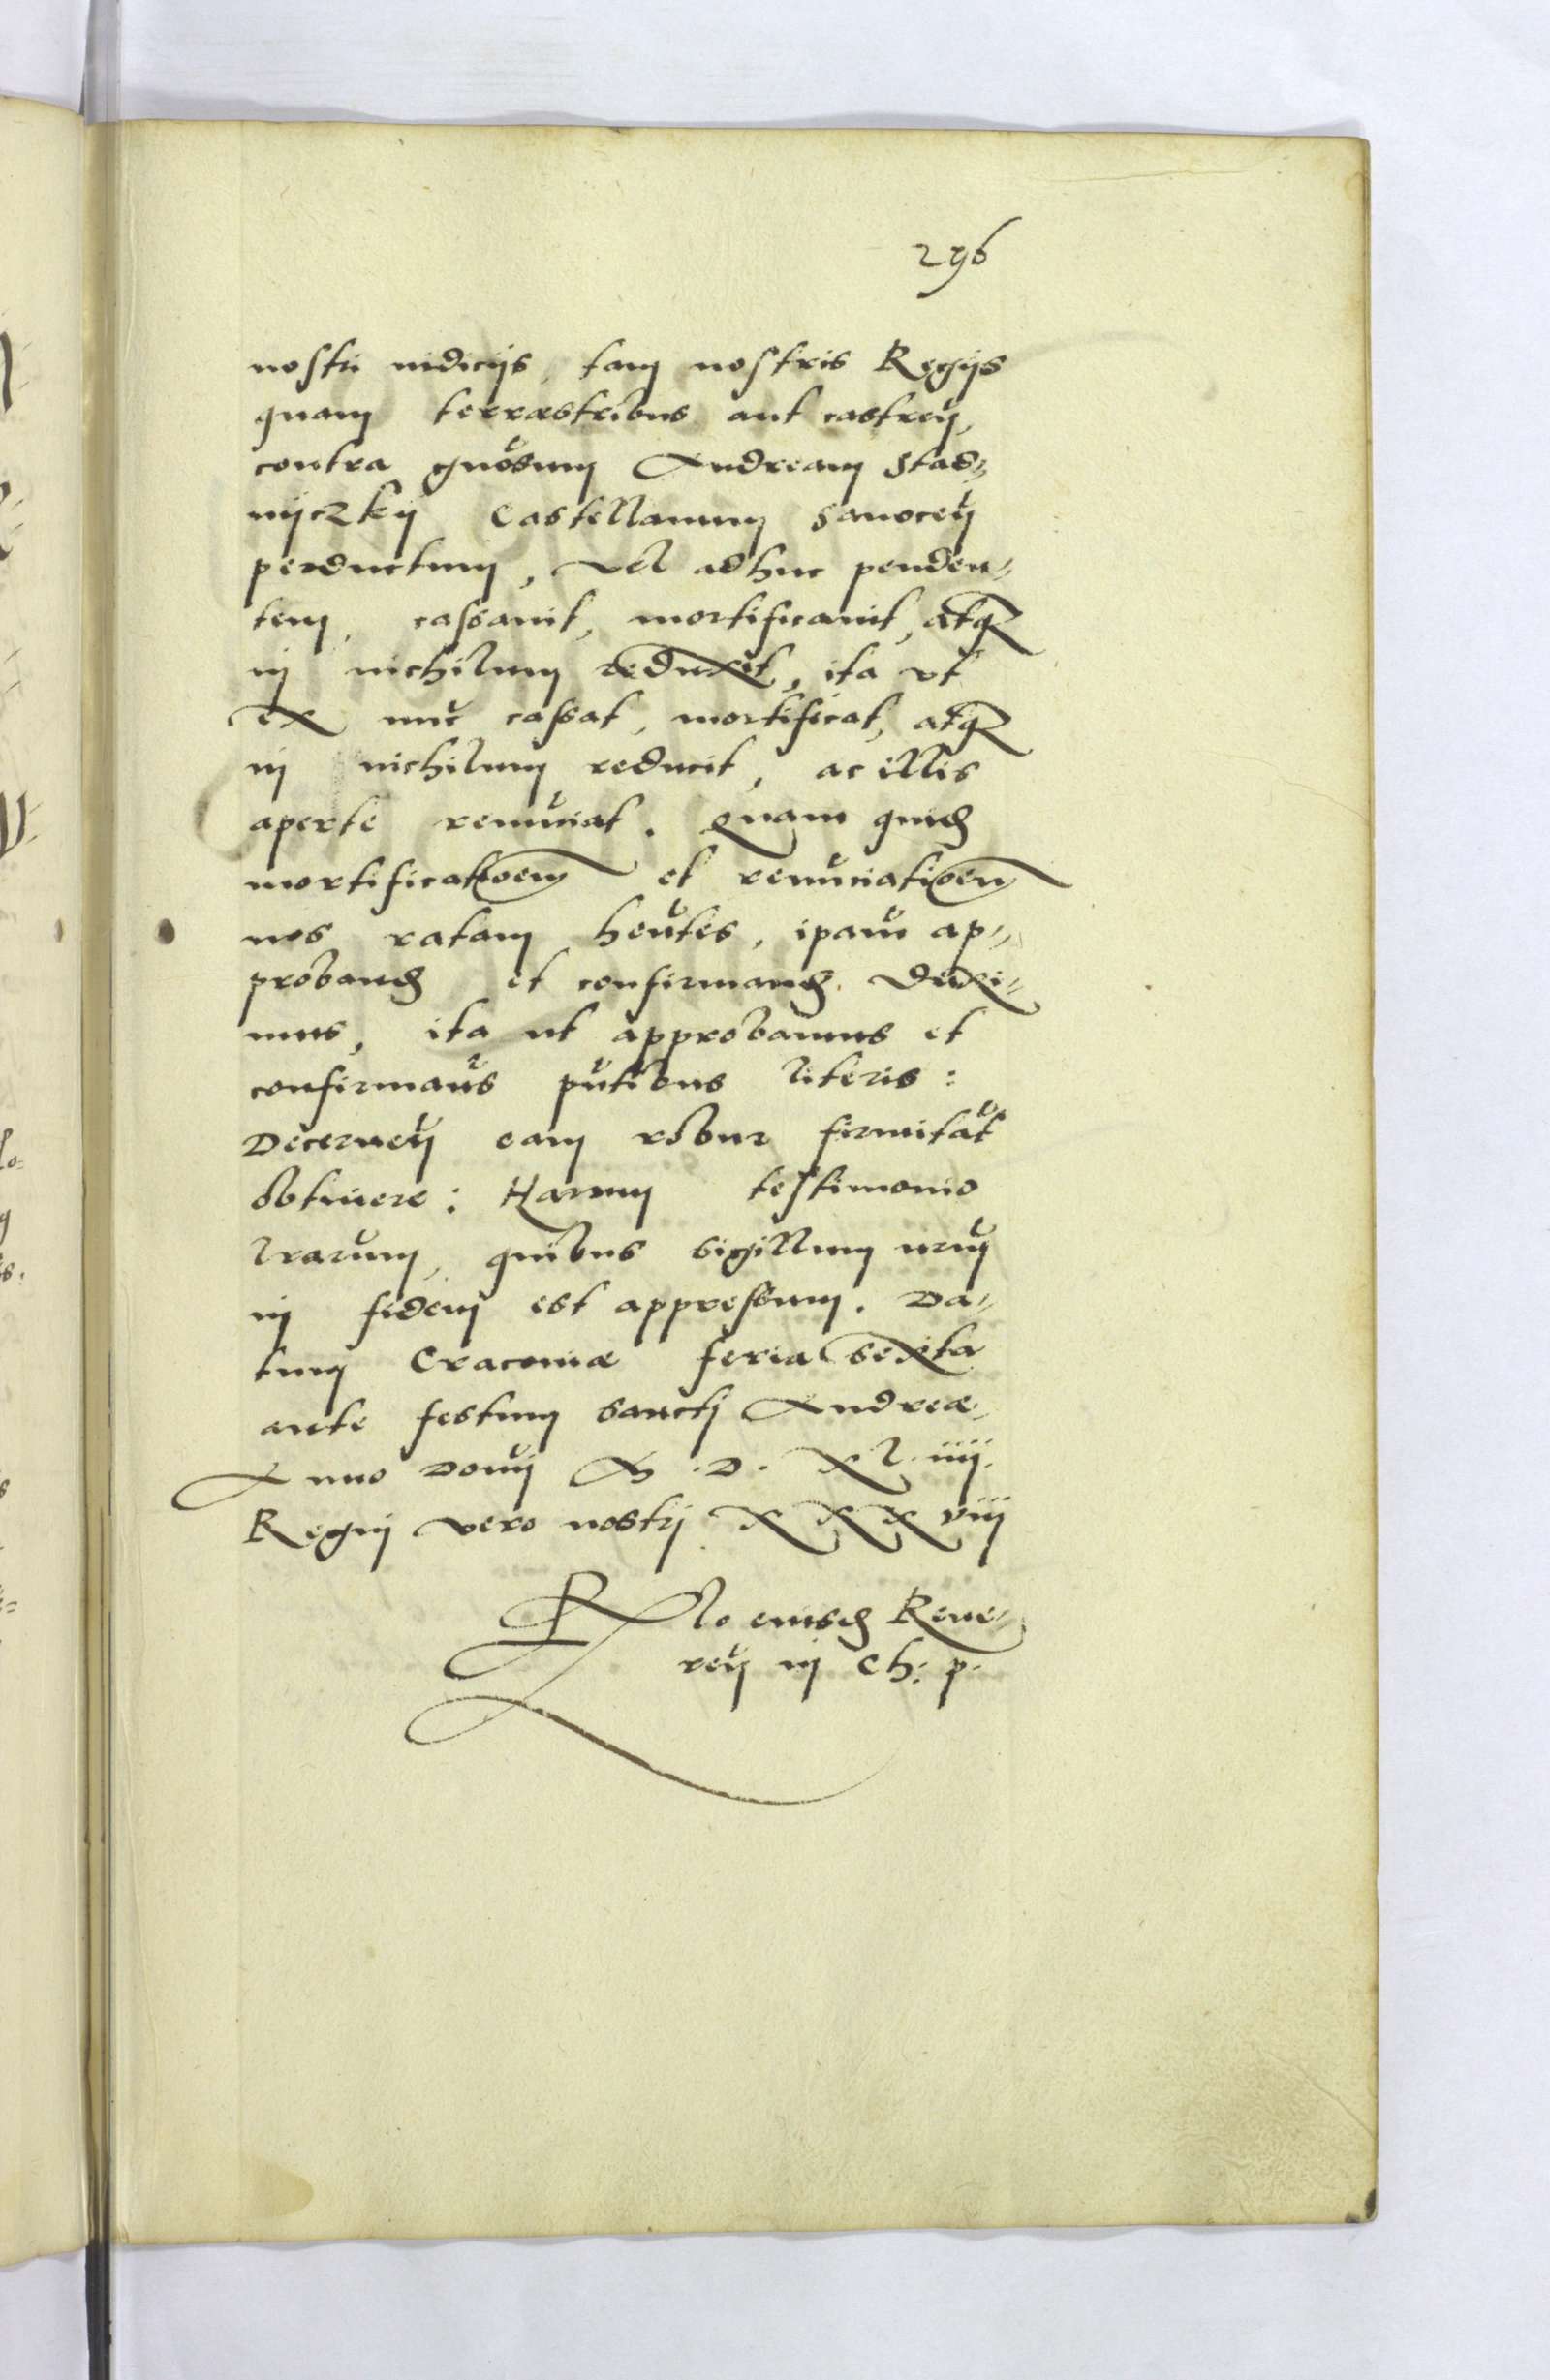 296
nostri iudicijs, tam nostris Regijs
quam terræstribus aut castreñ,
contra gnosum Andream Stad„
nijczkij Castellanum Sanoceñ
perductum, vel adhuc penden„
tem, cassauit, mortificauit, atq
in nichilum reduxit, ita vt
ex nuc cassat, mortificat, atq
in nichilum reducit, ac illis
aperte renuciat. Quam quid
mortificatioem et renuciatioem
nos ratam hentes, ipam ap„
proband et confirmand duxi„
mus, ita ut approbamus et
confirmaus pntibus literis:
Decerneñ eam robur firmitat
obtinere: Harum testimonio
lrarum, quibus sigillum nrum
in fidem est appressum. Da„
tum Cracouiæ feria sexta
ante festum sancti Andreæ,
Anno Domi M . D . XL iiij.
Regni vero nostri XXXviij
Rlo eiusd Reue„
ren in Ch: p.